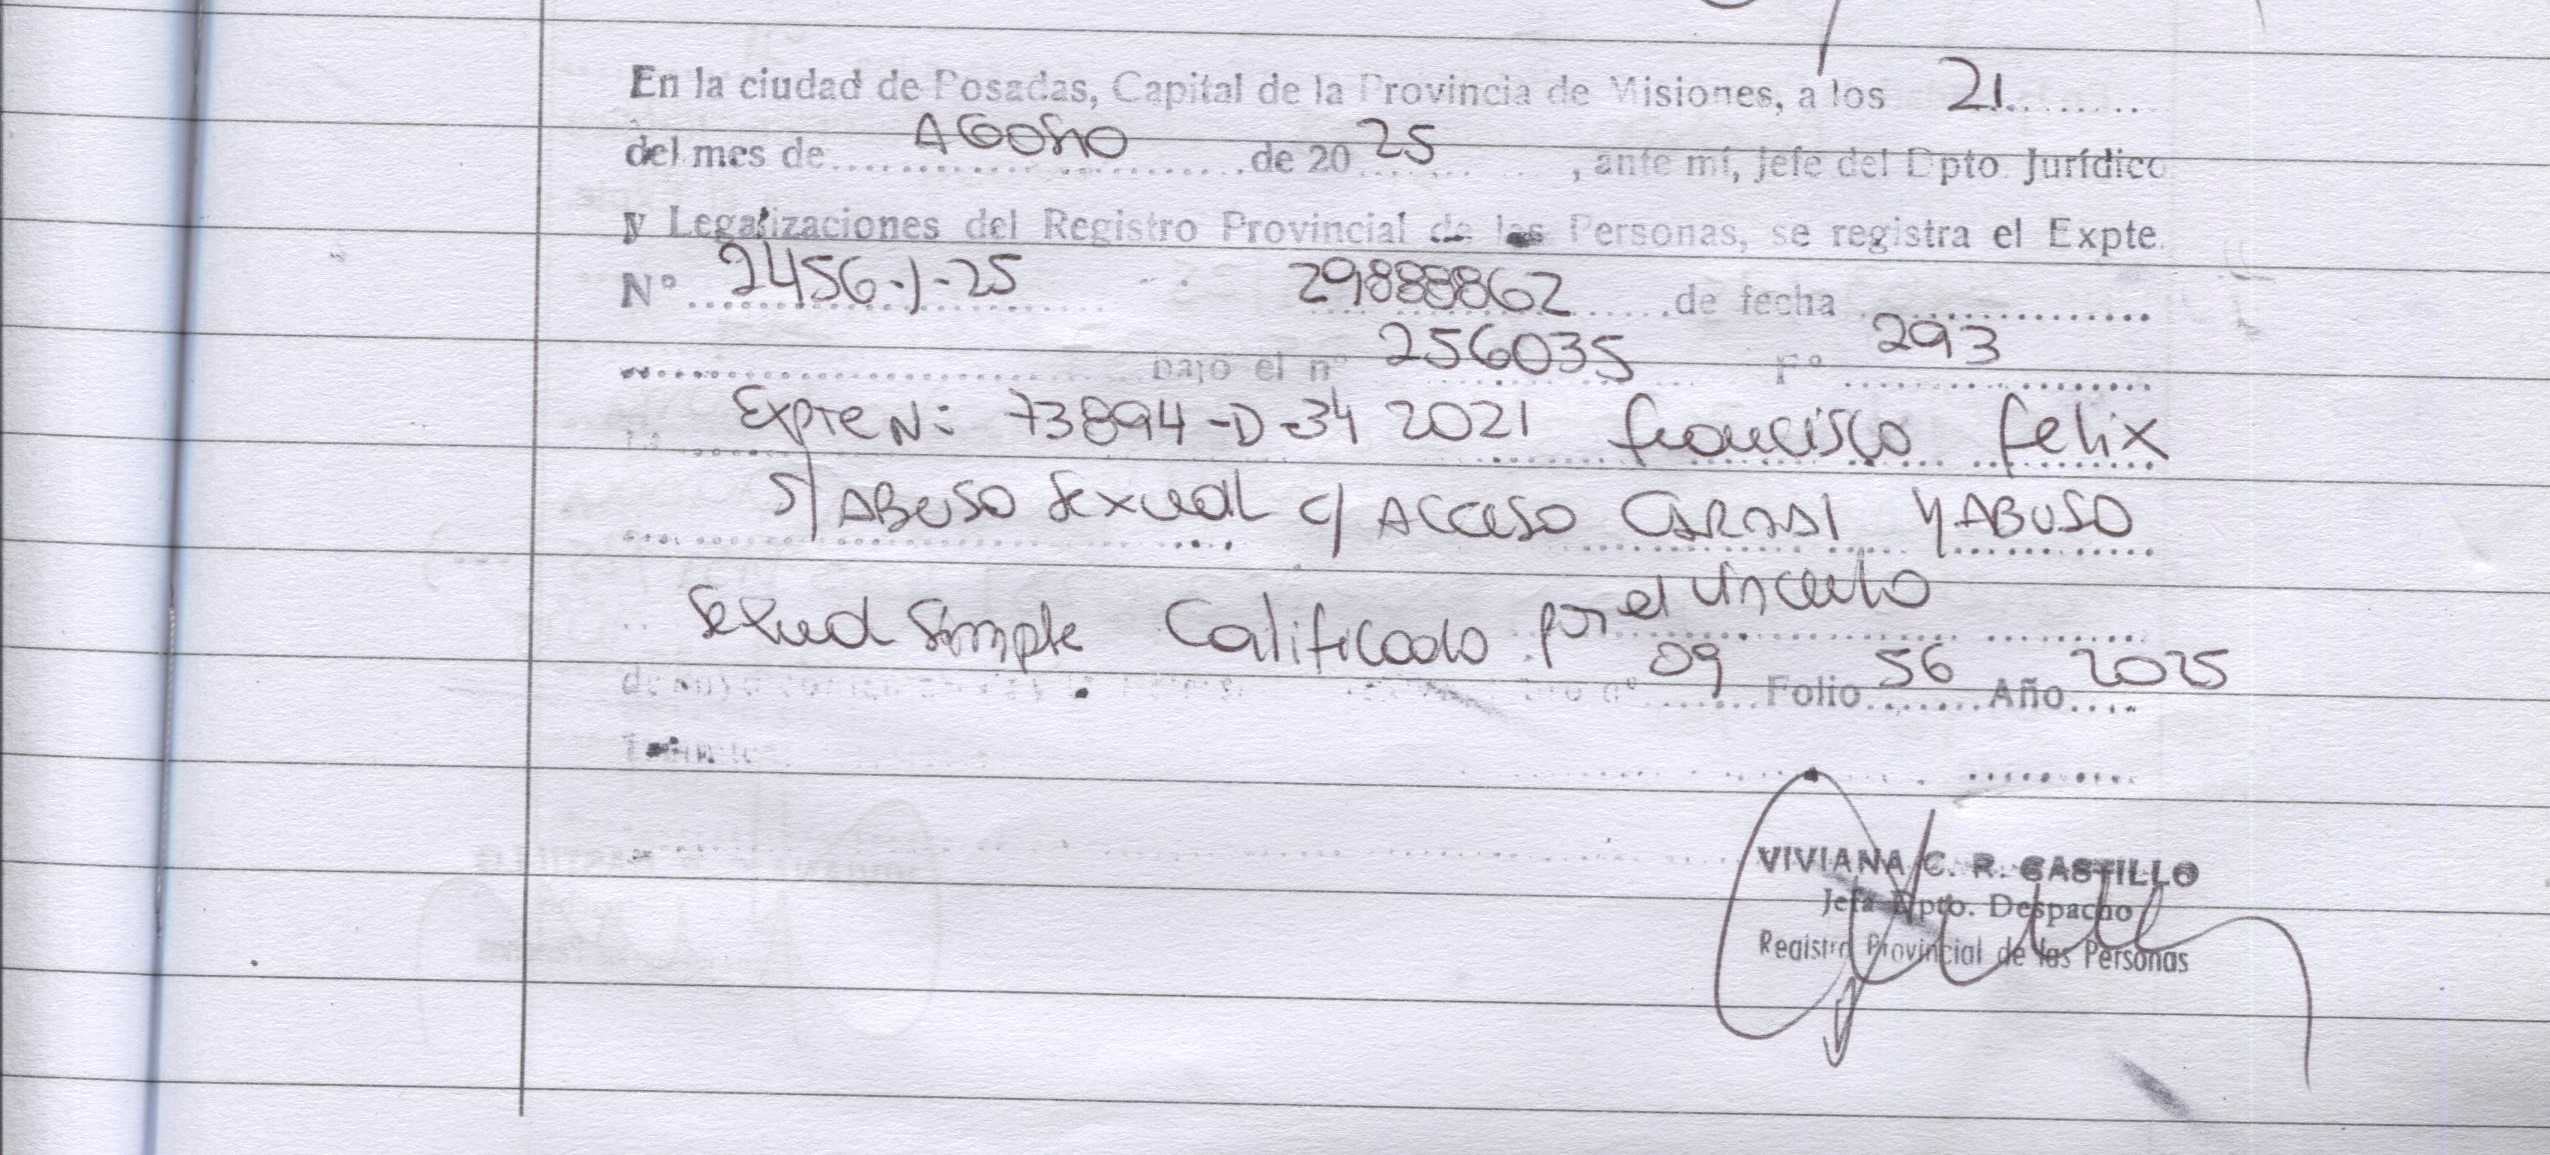 En la ciudad de Posadas, Capital de la Provincia de Misiones, a los 21
del mes de AGOSTO de 20 25, ante mí, Jefe del Dpto. Jurídico
y Legalizaciones del Registro Provincial de las Personas, se registra el Expte.
Nº 2456-J-25 29888862 de fecha
bajo el nº 256035 Fº 293
Expte N: 73894-D-34 2021 Francisco Felix
S/ ABUSO Sexual c/ ACCESO CARNAL Y ABUSO
Sexual Simple Calificado por el vinculo
09 Folio 56 Año 2025
VIVIANA C. R. CASTILLO
Jefa Dpto. Despacho
Registro Provincial de las Personas